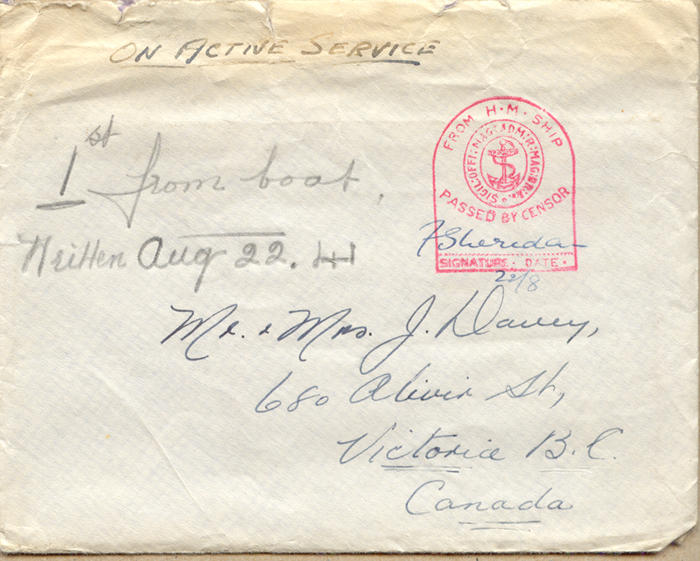 ON ACTIVE SERVICE
1st from boat,
Written Aug 22. 41
FROM H·M·SHIP
PASSED BY CENSOR
SIGNATURE· DATE·
22/8
Mr. & Mrs. J. Davey,
680 St,
Victoria B.C.
Canada